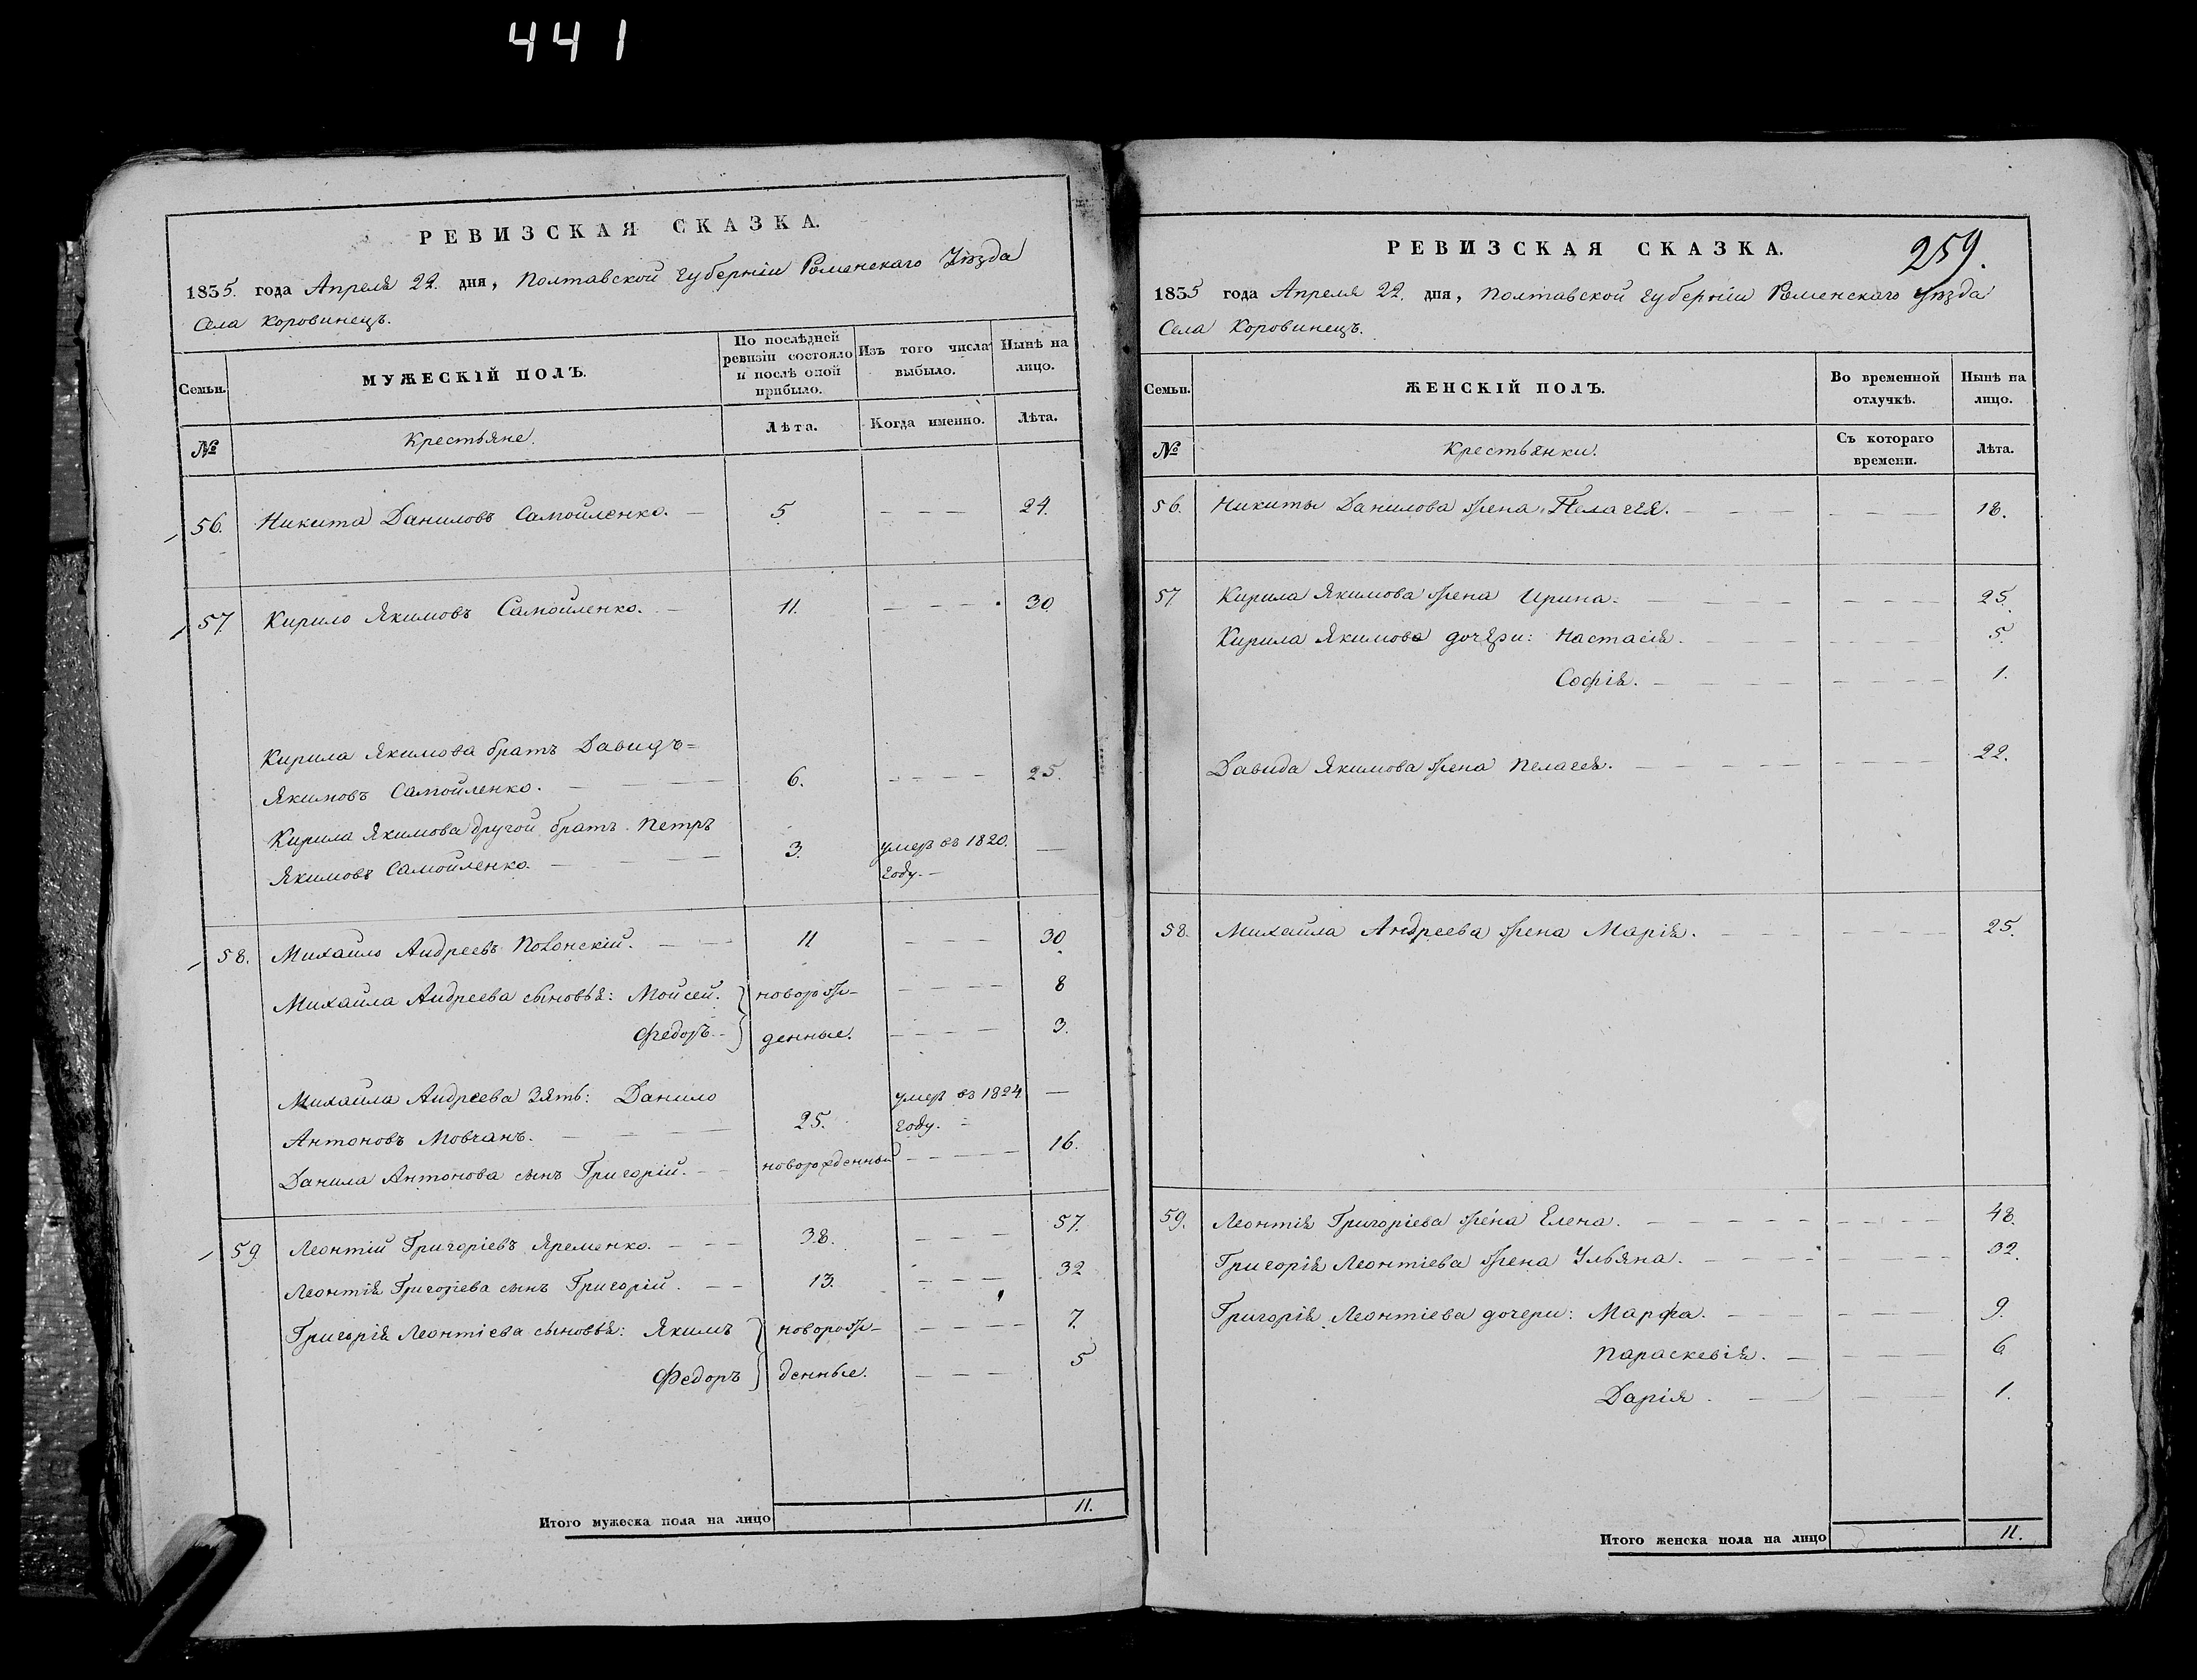 441
РЕВИЗСКАЯ СКАЗКА.
1835. года Апреля 22. дня, Полтавской Губерніи Роменскаго Уѣзда
Села Коровинецъ.
Семьи.
МУЖЕСКІЙ ПОЛЪ.
По послѣдней ревизіи состояло и послѣ оной прибыло.
Изъ того числа выбыло.
Нынѣ на лицо.
№
Крестьяне.
Лѣта.
Когда именно.
Лѣта.
56. Никита Даниловъ Самойленко. — 5 — — — 24.
57. Кирило Якимовъ Самойленко. — 11. — — — 30
Кирила Якимова братъ Давидъ=
Якимовъ Самойленко. — — — 6. — — — — 25.
Кирила Якимова другой братъ Петръ
Якимовъ Самойленко. — — — 3. умеръ въ 1820. —
году. —
58. Михайло Андреевъ Полонскій. — — 11 — — — 30
Михайла Андреева сыновья: Мойсей. } новорож- — — — — 8
Федоръ. - } денные. — — — — 3.
Михайла Андреева Зять: Данило умеръ въ 1824 —
Антоновъ Мовчанъ. — — — 25. году. -
Данила Антонова сынъ Григорій. — — новорожденный — — — — 16.
59 Леонтій Григоріевъ Яременко. — — — 38. — — — 57.
Леонтія Григоріева сынъ Григорій. — — 13. — — — 32
Григорія Леонтіева сыновья: Якимъ } новорож- — — — — 7.
Федоръ } денные. — — — 5
Итого мужеска пола на лицо 11.
РЕВИЗСКАЯ СКАЗКА.
259.
1835 года Апреля 22. дня, Полтавской Губерніи Роменскаго Уѣзда
Села Коровинецъ.
Семьи.
ЖЕНСКІЙ ПОЛЪ.
Во временной отлучкѣ.
Нынѣ на лицо.
№
Крестьянки.
Съ котораго времени.
Лѣта.
56. Никиты Данилова жена Пелагея. — — — — — — — 18.
57 Кирила Якимова жена Ирина. — — — — — — — 25.
Кирила Якимова дочери: Настасія. — — — — — — — 5.
Софія. — — — — — — — — 1.
Давида Якимова жена Пелагея. — — — — — — — — 22.
58. Михайла Андреева жена Марія. — — — — — — — 25.
59. Леонтія Григоріева жена Елена. — — — — — — — — 48.
Григорія Леонтіева жена Ульяна. — — — — — — — 32.
Григорія Леонтіева дочери: Марфа. — — — — — — — 9.
Параскевія. — — — — — 6
Дарія. — — — — — 1.
Итого женска пола на лицо 11.